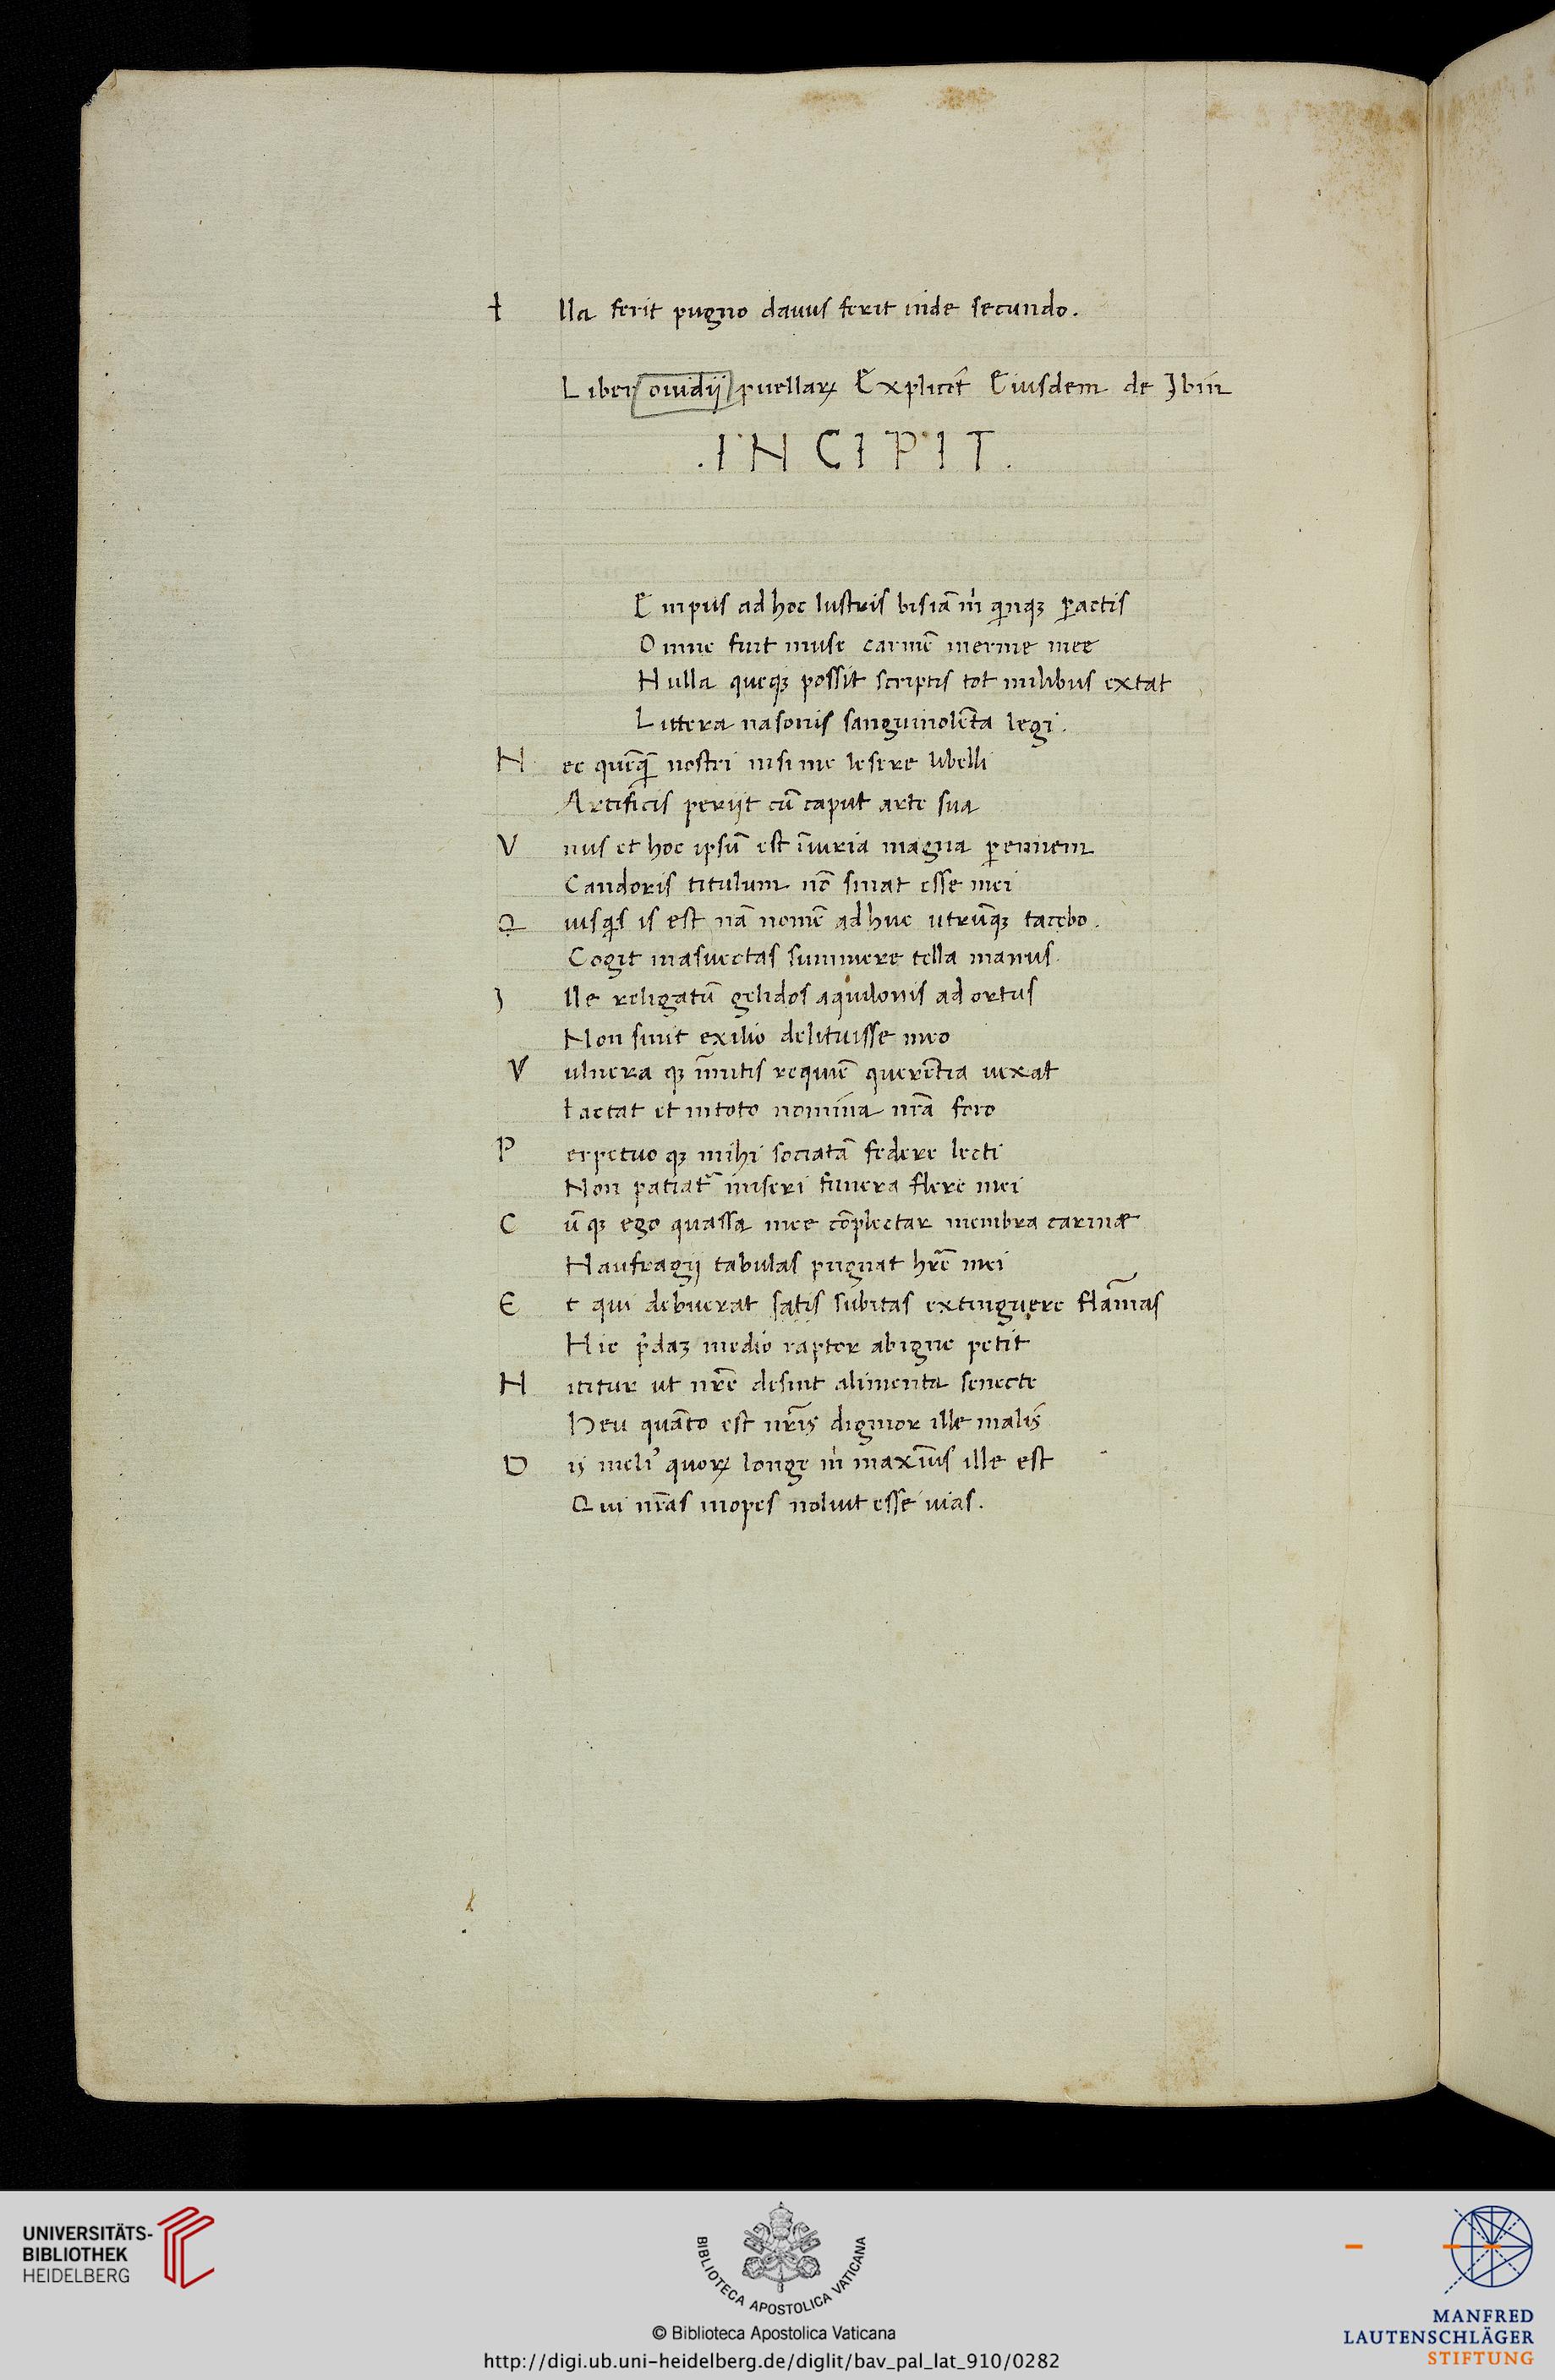 I lla ferit pugno dauus ferit inde secundo.
Liber ouidij puellaꝝ Explicit Eiusdem de Ibin
.INCIPIT.
E mpus ad hoc lustris bis iā m̍ qinqꝫ ꝑactis
O mne fuit muse carmē inerme mee
N ulla queqꝫ possit scriptis tot milibus extat
L ittera nasonis sanguinolēta legi.
N ec quēq̄ nostri nisi me lesere libelli
Artificis perijt cū caput arte sua
V nus et hoc ipsū est īiuria magna ꝑennem
Candoris titulum nō sinat esse mei
Q uisqis is est nā nomē adhuc utrūqꝫ tacebo.
Cogit inasuectas summere tella manus.
I lle religatū gelidos aquilonis ad ortus
Non sinit exilio delituisse meo
V ulnera qꝫ īmitis requiē querētia uexat
Iactat et in toto nomina nr̄a foro
P erpetuo qꝫ mihi sociatā federe lecti
Non patiat᷑ miseri funera flere mei
C ū qꝫ ego quassa mee cōplectar membra carinæ
Naufragij tabulas pugnat hr̄e mei
E t qui debuerat satis subitas extinguere flam̄as
Hic p̍daꝫ medio raptor ab igne petit
N ititur ut nr̄e desint alimenta senecte
Heu quāto est nr̄is dignior ille malis
D ij meliꝰ quoꝝ longe m̍ maxim̄us ille est
Qui nr̄as inopes noluit esse uias.
UNIVERSITÄTS-
BIBLIOTHEK
HEIDELBERG
BIBLIOTECA APOSTOLICA VATICANA
© Biblioteca Apostolica Vaticana
http://digi.ub.uni-heidelberg.de/diglit/bav_pal_lat_910/0282
MANFRED
LAUTENSCHLÄGER
STIFTUNG